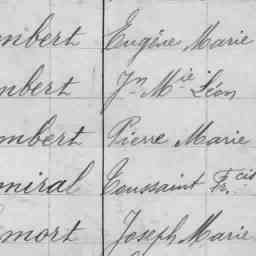 mbert Eugène Marie
mbert Jn Mie Léon
mbert Pierre Marie
miral Toussaint Fr.cis
mort Joseph Marie